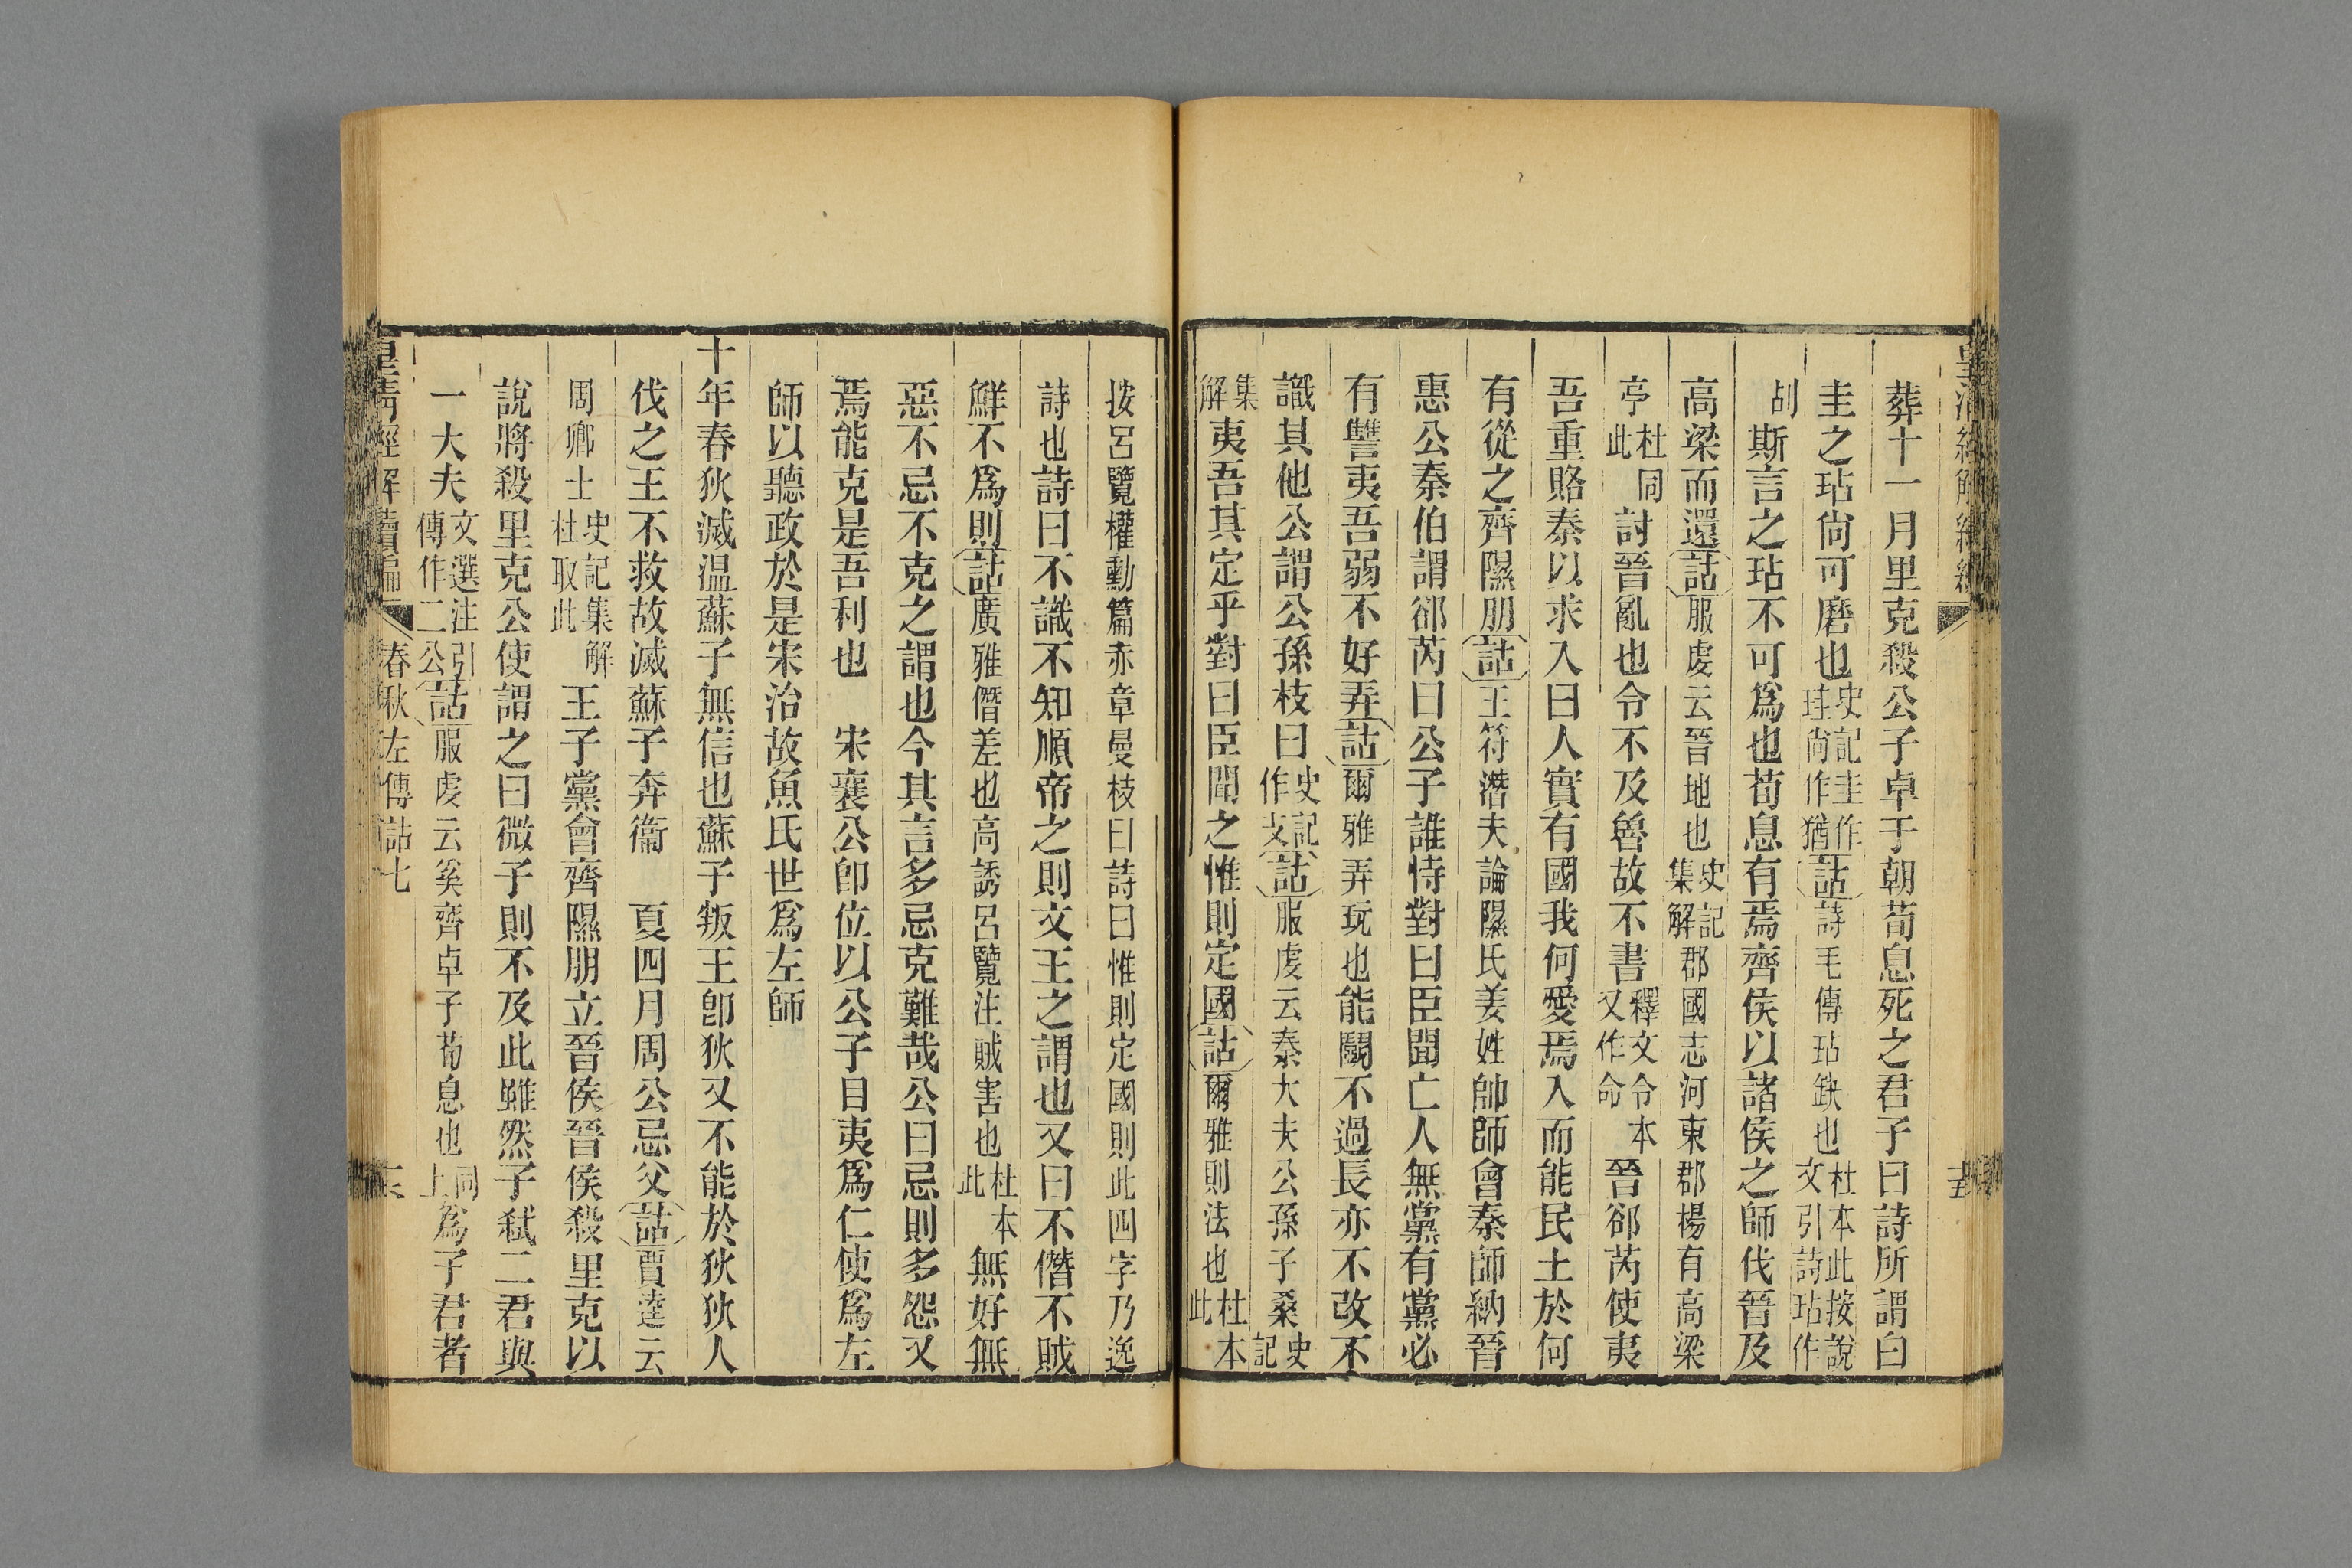 皇清經解續編
葬十一月里克殺公子卓于朝荀息死之君子曰詩所謂白
圭之玷尙可磨也史記圭作珪尙作猶詁詩毛傳玷缺也杜本此按說文引詩玷作
㓠斯言之玷不可爲也荀息有焉齊侯以諸侯之師伐晉及
高梁而還詁服虔云晉地也史記集解郡國志河東郡楊有高梁
亭杜同此討晉亂也令不及魯故不書釋文令本又作命晉郤芮使夷
吾重賂秦以求入曰人實有國我何愛焉入而能民土於何
有從之齊隰朋詁王符潛夫論隰氏姜姓帥師會秦師納晉
惠公秦伯謂郤芮曰公子誰恃對曰臣聞亡人無黨有黨必
有讐夷吾弱不好弄詁爾雅弄玩也能鬭不過長亦不改不
識其他公謂公孫枝曰史記作支詁服虔云秦大夫公孫子桑史記
集解夷吾其定乎對曰臣聞之惟則定國詁爾雅則法也杜本此
按呂覽權勳篇赤章曼枝曰詩曰惟則定國則此四字乃逸
詩也詩曰不識不知順帝之則文王之謂也又曰不僭不賊
鮮不爲則詁廣雅僭差也高誘呂覽注賊害也杜本此無好無
惡不忌不克之謂也今其言多忌克難哉公曰忌則多怨又
焉能克是吾利也　宋襄公卽位以公子目夷爲仁使爲左
師以聽政於是宋治故魚氏世爲左師
十年春狄滅温蘇子無信也蘇子叛王卽狄又不能於狄狄人
伐之王不救故滅蘇子奔衞　夏四月周公忌父詁賈逵云
周卿士史記集解杜取此王子黨會齊隰朋立晉侯晉侯殺里克以
說將殺里克公使謂之曰微子則不及此雖然子弑二君與
一大夫文選注引傳作二公詁服虔云奚齊卓子荀息也同上爲子君者
皇清經解續編　春秋左傳詁七